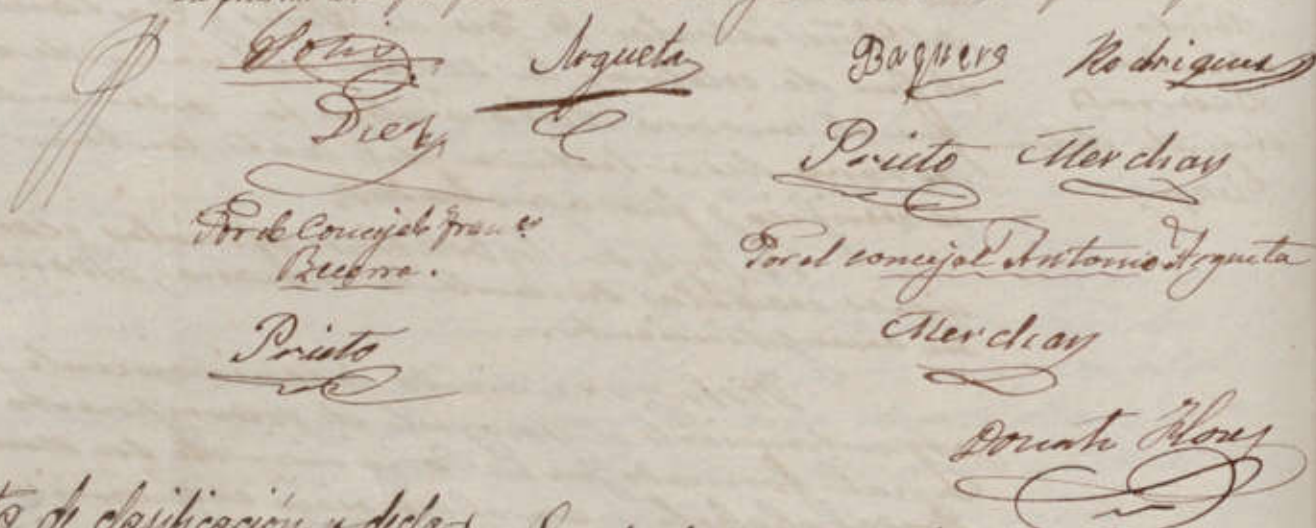 Solis Argueta Baquera Rodriguez
Diez
Prieto Merchan
Por el Concejal Franco
Becerra.
Por el concejal Antonio Argueta
Prieto
Merchan
Donato Flores
de clasificación y